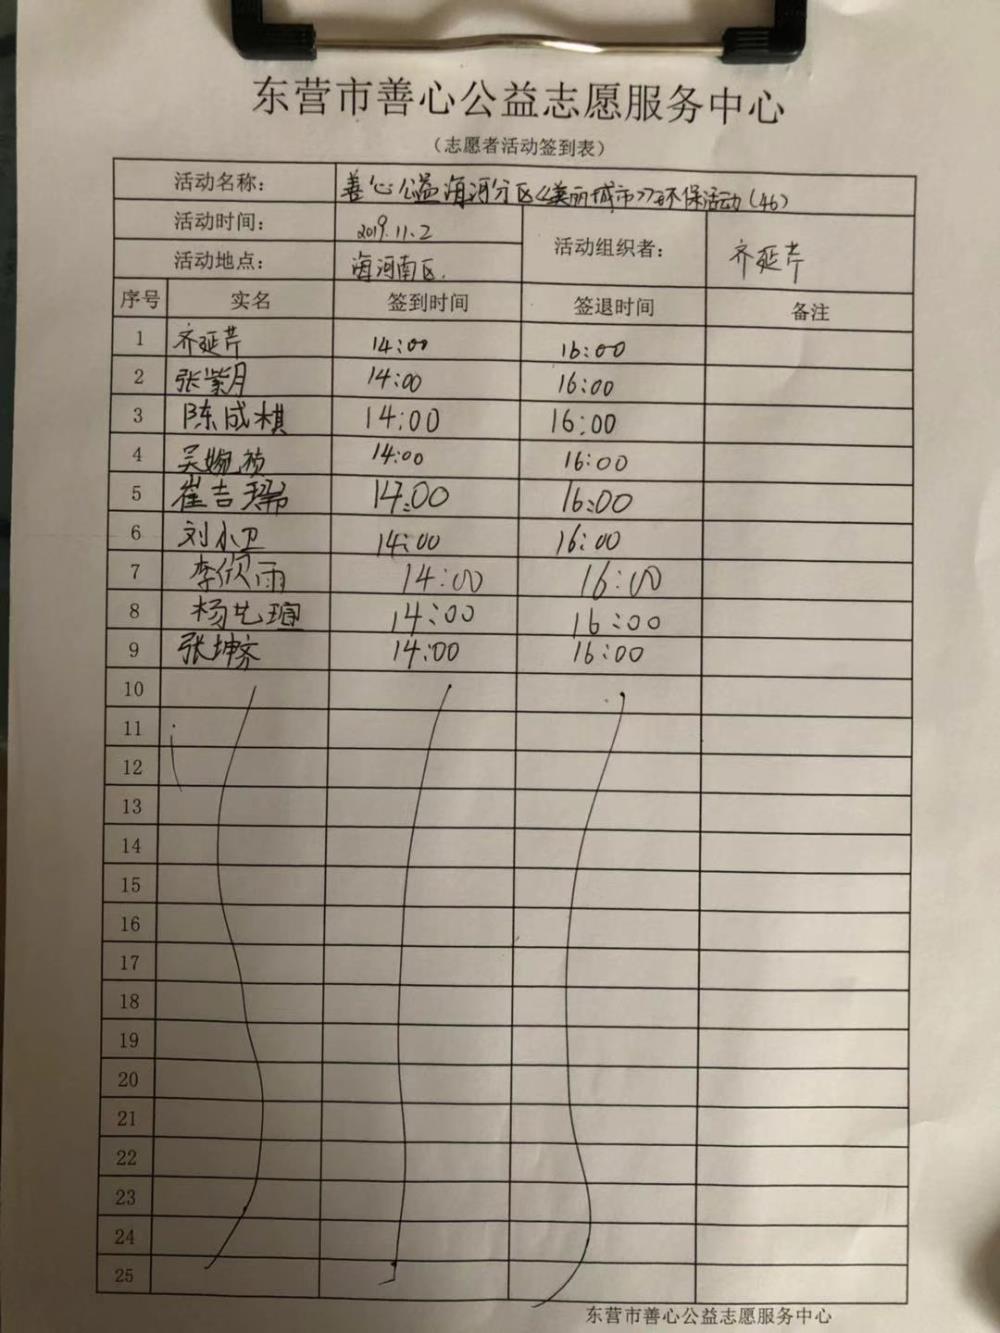 东营市善心公益志愿服务中心
（志愿者活动签到表）
活动名称： 善心公益海河分区《美丽城市》环保活动（46）
活动时间： 2019.11.2 活动组织者： 齐延芹
活动地点： 海河南区.
序号 实名 签到时间 签退时间 备注
1 齐延芹 14:00 16:00
2 张紫月 14:00 16:00
3 陈成棋 14:00 16:00
4 吴婉祯 14:00 16:00
5 崔吉瑞 14:00 16:00
6 刘小卫 14:00 16:00
7 李欣雨 14:00 16:00
8 杨艺瑄 14:00 16:00
9 张坤齐 14:00 16:00
10
11
12
13
14
15
16
17
18
19
20
21
22
23
24
25
东营市善心公益志愿服务中心